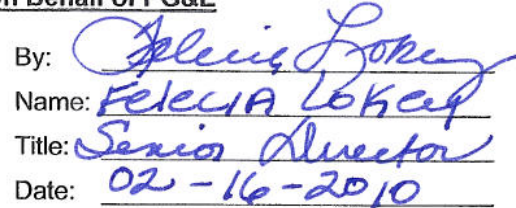 on Behalf of PG&E
By: Felecia Lokey
Name: Felecia Lokey
Title: Senior Director
Date: 02-16-2010